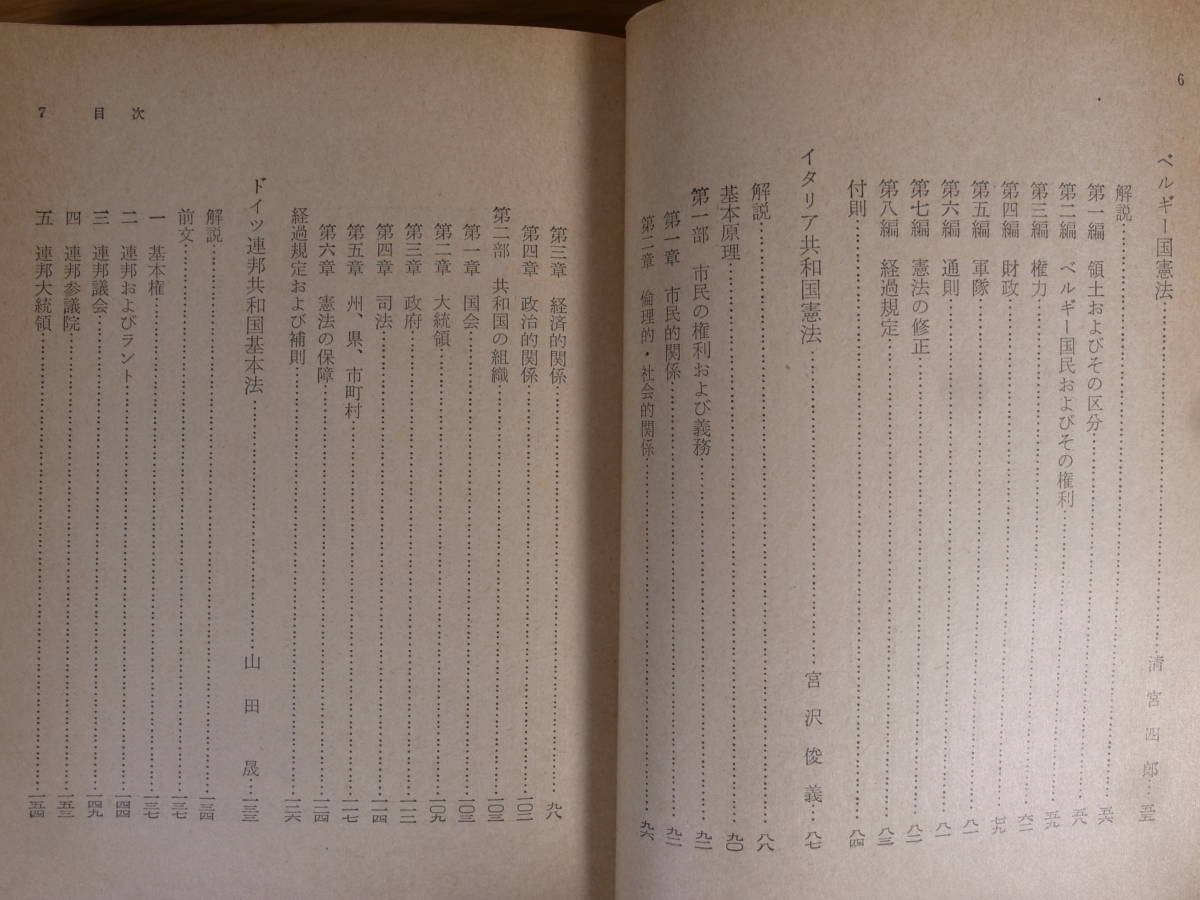 6
ベルギー国憲法……清宮四郎…五五
解説……五六
第一編　領土およびその区分……五八
第二編　ベルギー国民およびその権利……五九
第三編　権力……六二
第四編　財政……七九
第五編　軍隊……八一
第六編　通則……八一
第七編　憲法の修正……八二
第八編　経過規定……八三
付則……八四
イタリア共和国憲法……宮沢俊義…八七
解説……八八
基本原理……九〇
第一部　市民の権利および義務……九二
第一章　市民的関係……九二
第二章　倫理的・社会的関係……九六
7　目次
第三章　経済的関係……九八
第四章　政治的関係……一〇二
第二部　共和国の組織……一〇三
第一章　国会……一〇三
第二章　大統領……一〇九
第三章　政府……一一二
第四章　司法……一一四
第五章　州、県、市町村……一一七
第六章　憲法の保障……一二四
経過規定および補則……一二六
ドイツ連邦共和国基本法……山田　晟…一三三
解説……一三四
前文……一三七
一　基本権……一三七
二　連邦およびラント……一四四
三　連邦議会……一四九
四　連邦参議院……一五三
五　連邦大統領……一五四